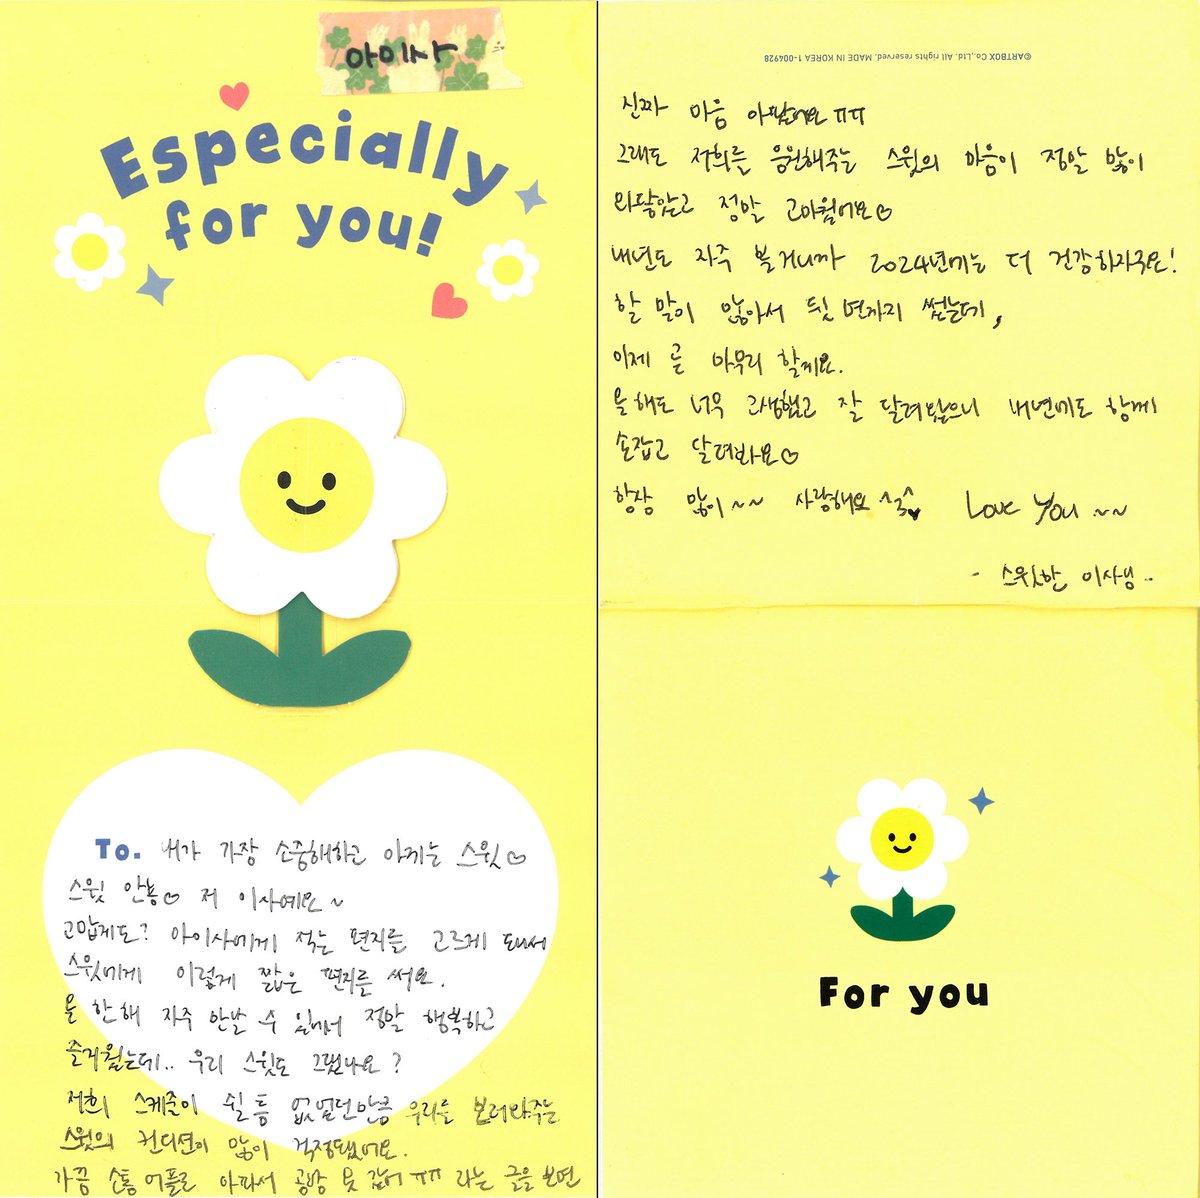 아이사
Especially
for you!
To. 내가 가장 소중해하고 아끼는 스윗♡
스윗 안뇽♡ 저 이사예요~
고맙게도? 아이사에게 적는 편지를 고르게 돼서
스윗에게 이렇게 짧은 편지를 써요.
올 한해 자주 만날 수 있어서 정말 행복하고
즐거웠는데.. 우리 스윗도 그랬나요?
저희 스케줄이 쉴 틈 없었던만큼 우리를 보러와주는
스윗의 컨디션이 많이 걱정됐어요.
가끔 소통어플로 아파서 공방 못 갔어ㅠㅠ 라는 글을 보면
©ARTBOX Co.,Ltd. All rights reserved. MADE IN KOREA 1-004928
진짜 마음 아팠어요ㅠㅠ
그래도 저희를 응원해주는 스윗의 마음이 정말 많이
와닿았고 정말 고마웠어요♡
내년도 자주 볼거니까 2024년에는 더 건강하자구요!
할 말이 많아서 뒷 면까지 썼는데,
이제 곧 마무리 할게요.
올해도 너무 고생했고 잘 달려왔으니 내년에도 함께
손잡고 달려봐요♡
항상 많이~~ 사랑해요 Love You ~~
- 스윗한 이사님..
For you